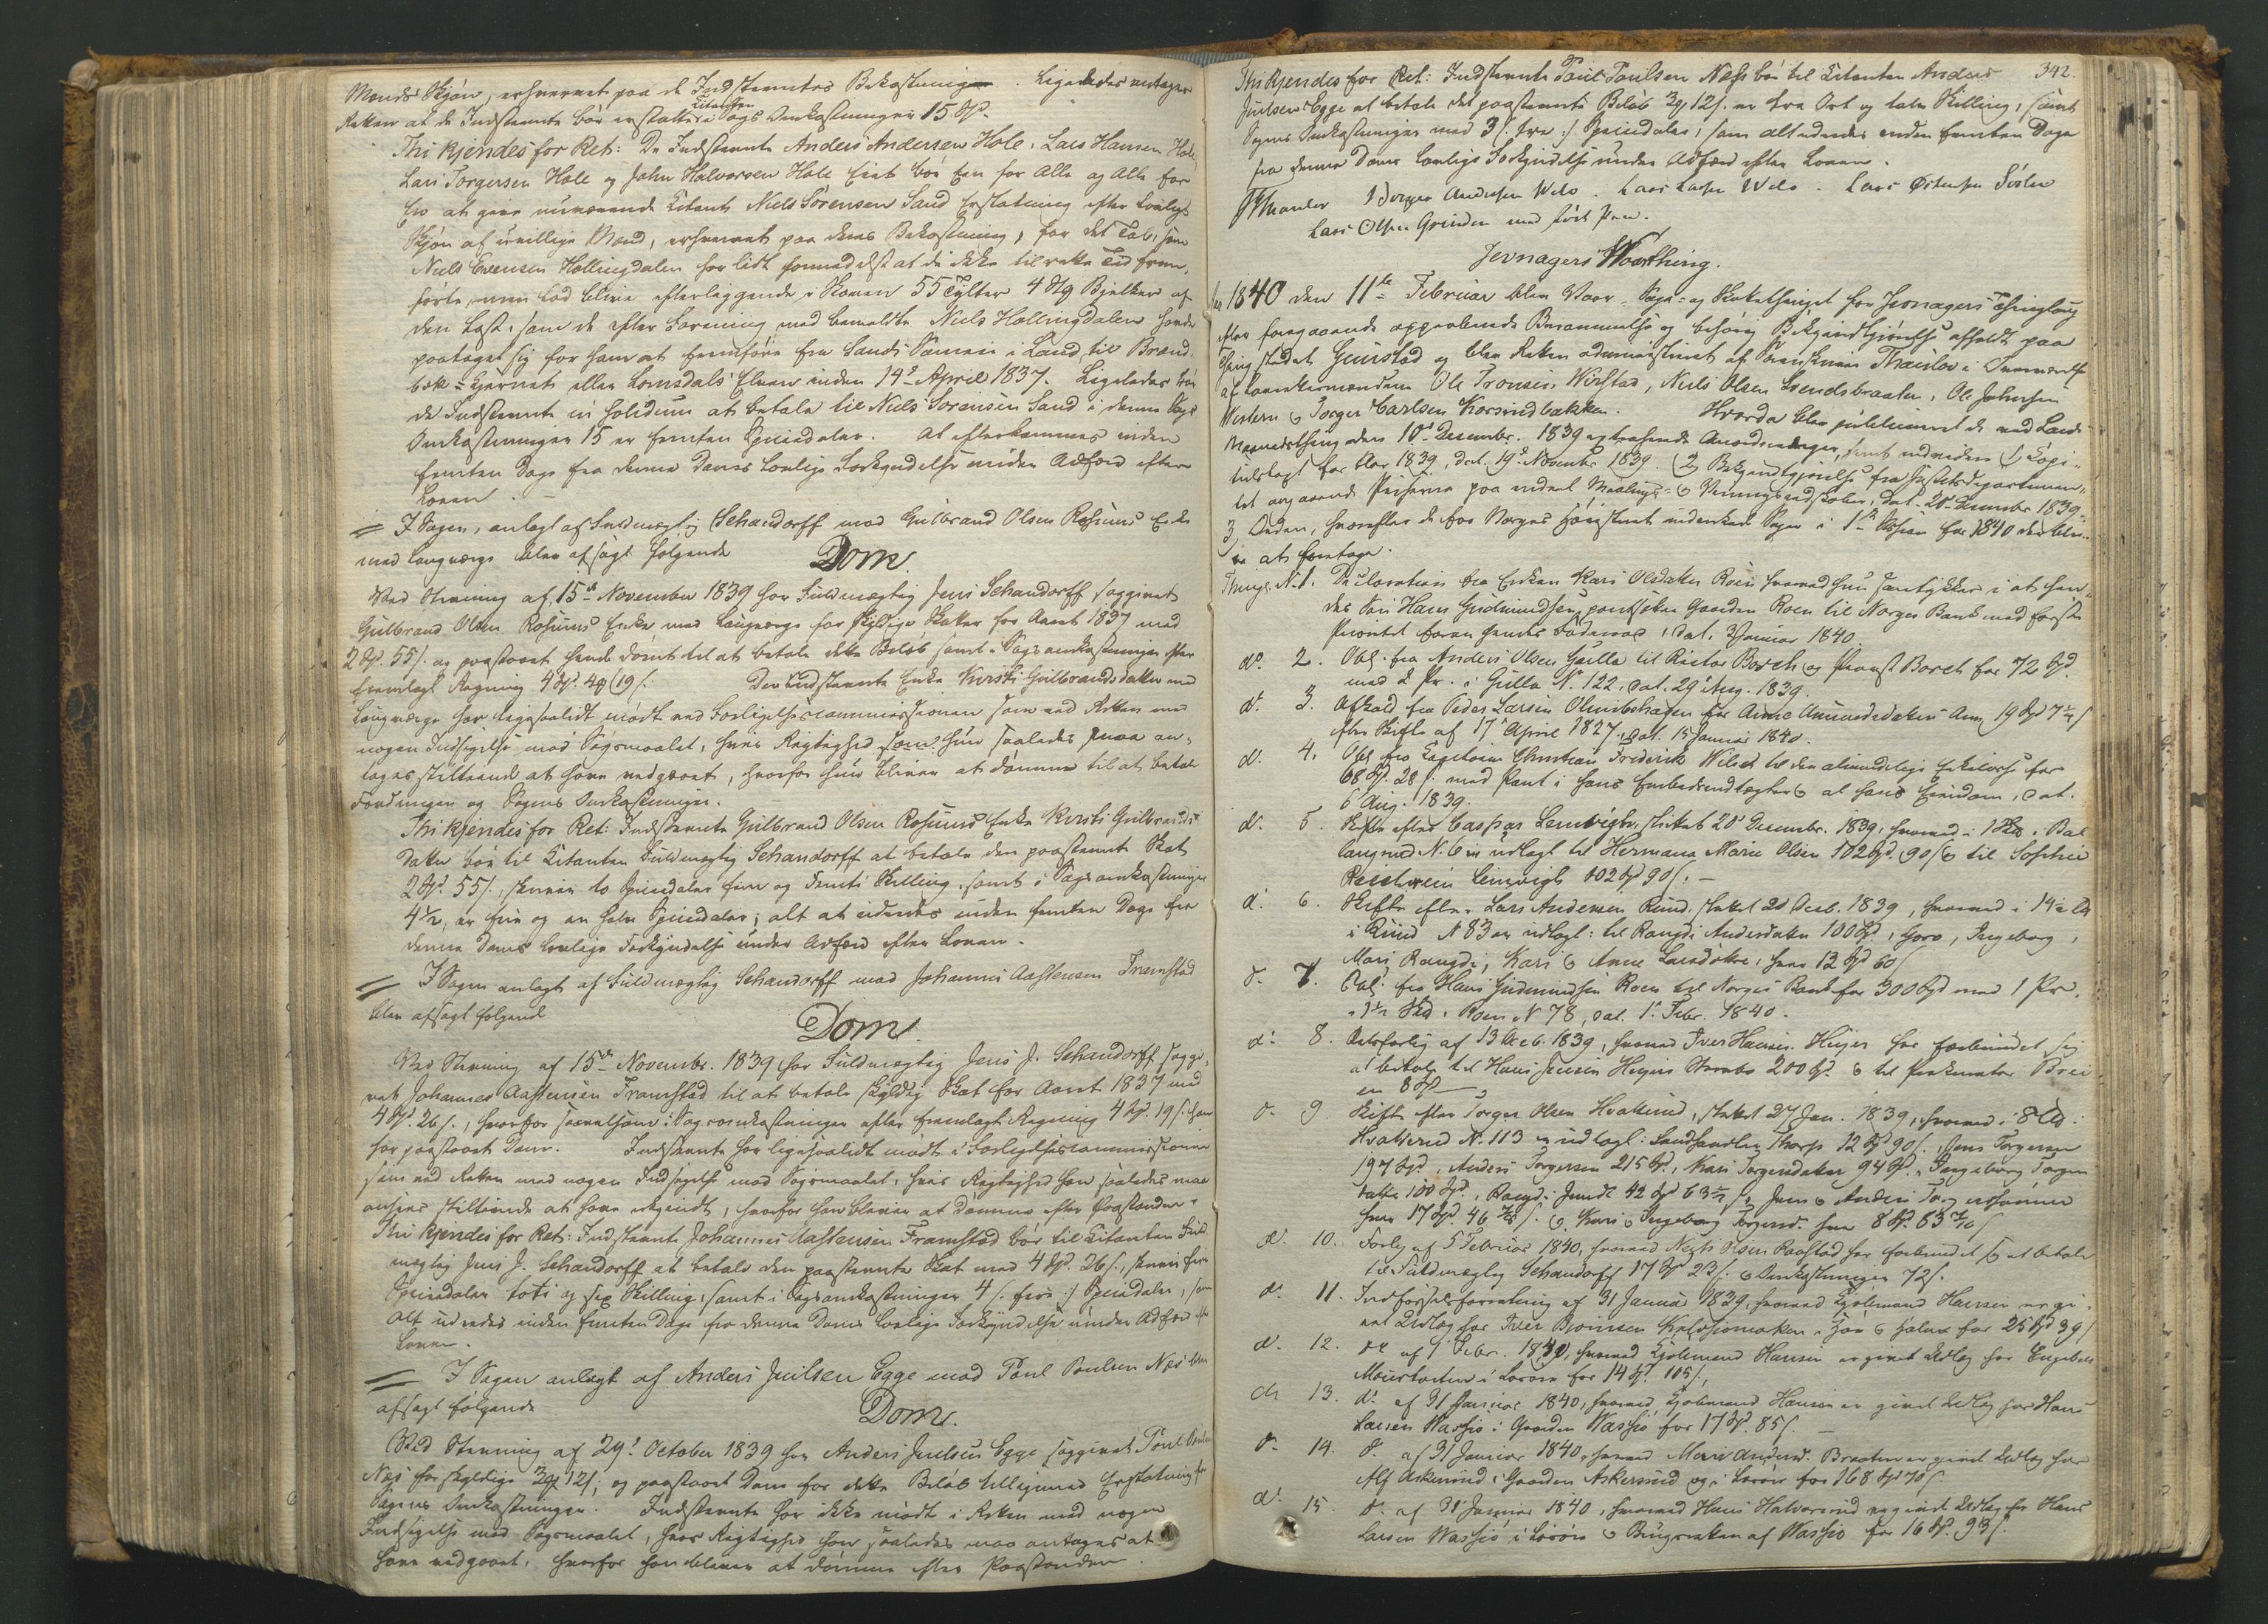 Mænds Skjøn, erhvervet paa de Indstævntes Bekostning. Ligeledes antager
Retten at de Indstævnte bør erstatte Citanten Sags Omkostninger 15 Spd.
Thi kjendes for Ret: De Indstævnte Anders Andersen Hole, Lars Hansen Hole
Lars Torgersen Hole og John Halvorsen Hole bør En for Alle og Alle for
En at give nærværende Citant Niels Sörensen Sand Erstatning efter Lovligt
Skjøn af uvillige Mænd, erhvervet paa deres Bekostning, for det Tab, som
Niels Evensen Hollingdalen har lidt formedelst at de ikke til rette Tid frem-
førte, men lod blive efterliggende i Skoven 55 Tylter 4 Stg Bjelker af
den Last, som de efter Forening med bemeldte Niels Hollingdalen havde
paataget sig for ham at fremføre fra Sands Sameie i Land til Brand-
bæk-Kjernet eller Lomsdals Elven inden 14de April 1837. Ligeledes bør
de Indstævnte in solidum at betale til Niels Sörensen Sand i denne Sags
Omkostninger 15 er femten Speciedaler. At efterkommes inden
femten Dage fra denne Doms lovlige Forkyndelse under Adfærd efter
Loven.
I Sagen, anlagt af Fuldmægtig Schandorff mod Gulbrand Olsen Rosums Enke
med Laugværge blev afsagt følgende
Dom.
Ved Stævning af 15de November 1839 har Fuldmægtig Jens Schandorff saggivet
Gulbrand Olsen Rosums Enke med Laugværge for skyldige Skatter for Aaret 1837 med
2 Spd. 55 s. og paastaaet hende dømt til at betale dette Beløb samt Sags omkostninger efter
fremlagt Regning 4 Spd. 4 19 s. Den Indstævnte Enke Kirsti Gulbrandsdatter med
Laugværge har ligesaalidt mødt ved Forligelsescommissionen som ved Retten med
nogen Indsigelse mod Søgsmaalet, hvis Rigtighed hun saaledes maa an-
tages stiltiende at have vedgaaet, hvorfor hun bliver at dømme til at betale
Fordringen og Sagens Omkostninger.
Thi kjendes for Ret: Indstævnte Gulbrand Olsen Rosums Enke Kirsti Gulbrands-
datter bør til Citanten Fuldmægtig Schandorff at betale den paastævnte Skat
2 Spd. 55 s., skriver to Speciedaler fem og femti Skilling, samt i Sags omkostninger
4 1/2, er fire og en halv Speciedaler; alt at udredes inden femten Dage fra
denne Doms lovlige Forkyndelse under Adfærd efter Loven.
I Sagen anlagt af Fuldmægtig Schandorff mod Johannes Aastensen Framstad
blev afsagt følgende
Dom.
Ved Stævning af 15de Novembr. 1839 har Fuldmægtig Jens J. Schandorff saggi-
vet Johannes Aastensen Framstad til at betale skyldig Skat for Aaret 1837 med
4 Spd. 26 s., hvorfor saavelsom Sagsomkostninger efter fremlagt Regning 4 Spd. 19 s. han
har paastaaet Dom. Indstævnte har ligesaalidt mødt i Forligelsescommissionen
som ved Retten med nogen Indsigelse mod Søgsmaalet, hvis Rigtighed han saaledes maa
ansees stiltiende at have erkjendt, hvorfor han bliver at dømme efter Paastanden.
Thi kjendes for Ret: Indstævnte Johannes Aastensen Framstad bør til Citanten Fuld-
mægtig Jens J. Schandorff at betale den paastævnte Skat med 4 Spd. 26 s., skriver fire
Speciedaler toti og sex Skilling, samt i Sagsomkostninger 4 s. fire :/ Speciedaler, som
Alt udredes inden femten Dage fra denne Doms lovlige Forkyndelse under Adfærd efter
Loven.
I Sagen anlagt af Anders Juulsen Egge mod Poul Poulsen Næs blev
afsagt følgende
Dom.
Ved Stævning af 29de October 1839 har Anders Juulsen Egge saggivet Poul Poulsen
Næs for skyldige 3 12 s. og paastaaet Dom for dette Beløb tilligemed Erstatning for
Sagens Omkostninger. Indstævnte har ikke mødt i Retten med nogen
Indsigelse mod Søgsmaalet, hvis Rigtighed han saaledes maa antages at
have vedgaaet, hvorfor han bliver at dømme efter Paastanden.
342.
Thi kjendes for Ret: Indstævnte Poul Poulsen Næss bør til Citanten Anders
Juulsen Egge at betale det paastævnte Beløb 3 12 s. er tre Ort og tolv Skilling, samt
Sagens Omkostninger med 3 /: tre :/ Speciedaler, som alt udredes inden femten Dage
fra denne Doms lovlige Forkyndelse under Adfærd efter Loven.
Thaulov Torger Andersen Velo. Lars Larsen Velo. Lars Østensen
Lars Olsen Grinden med ført Pen.
Jevnagers Vaarthing.
1840 den 11te Februar blev Vaar-, Sage- og Skattethinget for Jevnagers Thinglaug
efter foregaaende approberede Berammelse og behørig Bekjendtgjørelse afholdt paa
Thingstedet Grinstad og blev Retten administreret af Sorenskriver Thaulov i Overværelse
af Laurettesmændene Ole Tronsen Wirstad, Niels Olsen Svendsbraaten, Ole Johnsen
Western og Torger Carlsen Korsrudbakken. Hvorda blev publiceret de ved Land-
Maanedsthing den 10de December 1839 Anordninger, samt endvidere 1) Capi-
telstaxt for Aar 1839, dat. 19de Novembr 1839. 2) Bekjendtgjørelse fra Finantsdepartemen-
tet angaaende Priserne paa endeel Maalings- og Veiningsredskaber, dat. 20de Decembr 1839.
3, Orden, hvorefter de for Norges Høiesteret indankede Sager i 1ste Session for 1840 skal bli-
ve at foretage.
Thingl. No. 1. Declaration fra Enken Kari Olsdatter Roen hvorved hun samtykker i at hen-
des Søn Hans Gudmundsen pantsætter Gaarden Roen til Norges Bank med første
Prioritet foran hendes Føderaad, dat. 3 Januar 1840.
do. 2. Obl. fra Anders Olsen Gulla til Rector Borch og Provst Borch for 72 Spd.
med 2 Pr. i Gulla No. 122, dat. 29 Aug. 1839.
do. 3. Afkald fra Peder Larsen Olumshagen for Anne Amundsdatters Arv 19 Spd 7 1/2 s
efter Skifte af 17 April 1827, dat. 15 Januar 1840.
do. 4. Obl. fra Capitain Christian Frederik Wilset til den almindelige Enkekasse for
68 Spd. 28 s. med Pant i hans Embedsindtægter og al hans Eiendom, dat.
6 Aug. 1839.
do. 5. Skifte efter Caspar Lemvigh, sluttet 20 Decembr. 1839, hvorved i
No. 6 er udlagt til Hermana Marie Olsen 102 Spd. 90 s og til Sophie
Lemvigh 102 Spd 90 s. –
do. 6. Skifte efter Lars Andersen Ruud, sluttet 20 Decb. 1839, hvorved i
i Ruud No 83 er udlagt: til Rangdi Andersdatter 100 Spd, Goro, Ingeborg,
Mari, Rangdi, Kari og Anne Larsdøtre, hver 12 Spd 60 s
do. 7. Obl. fra Hans Gudmundsen Roen til Norges Bank for 300 Spd med 1 Pr.
i Roen No 78, dat. 1 Febr. 1840.
do. 8. Retsforlig af 13 Decb. 1839, hvorved Iver Hansen Heijer har forbundet sig
at betale til Hans Jensen Heijers Sterbo 200 Spd. og til Prokurator Brei-
en 8 Spd –
do. 9. Skifte efter Torger Olsen Hvalerud, sluttet 27 Jan. 1839, hvorved i
Hvalerud No. 113 er udlagt: Landhandler Thorp 12 Spd 90 s., Jens Torgersen
197 Spd., Anders Torgersen 215 Spd., Kari Torgersdatter 94 Spd., Ingeborg Torgers-
datter 100 Spd., Rangdi 42 Spd 63 1/2 s, Jens og Anders Torgersønner
hver 17 Spd. 46 s. og Kari og Ingeborg Torgersd. hver 8 Spd. 83
do. 10. Forlig af 5 Februar 1840, hvorved Niels Olsen Raastad har forbundet sig at betale
til Fuldmægtig Schandorff 17 Spd 23 s. og Omkostninger 72 s.
do. 11. Indførselsforretning af 31 Januar 1839, hvorved Gjølmund Hansen er gi-
vet Udlæg hos Iver Bjørnsen i Høe og Halm for 25 Spd 39 s
do. 12. do af 1 Febr. 1840, hvorved Gjølmund Hansen er givet Udlæg hos Engebret
i Løsøre for 14 Spd. 105 s.
do 13. do. af 31 Januar 1840, hvorved Gjølmund Hansen er givet Udlæg hos Hans
Larsen Vassjø i Gaarden Vassjø for 17 Spd. 85 s. –
do. 14. do. af 31 Januar 1840, hvorved Mari Andersd. Braaten er givet Udlæg hos
Alf Askerud i Gaarden Askerud og i Løsøre for 168 Spd 70 s.
do. 15. do. af 31 Januar 1840, hvorved Hans Halvorsrud er givet Udlæg hos Hans
Larsen Vassjø i Løsøre og Brugsretten af Vassjø for 16 Spd. 93 s.